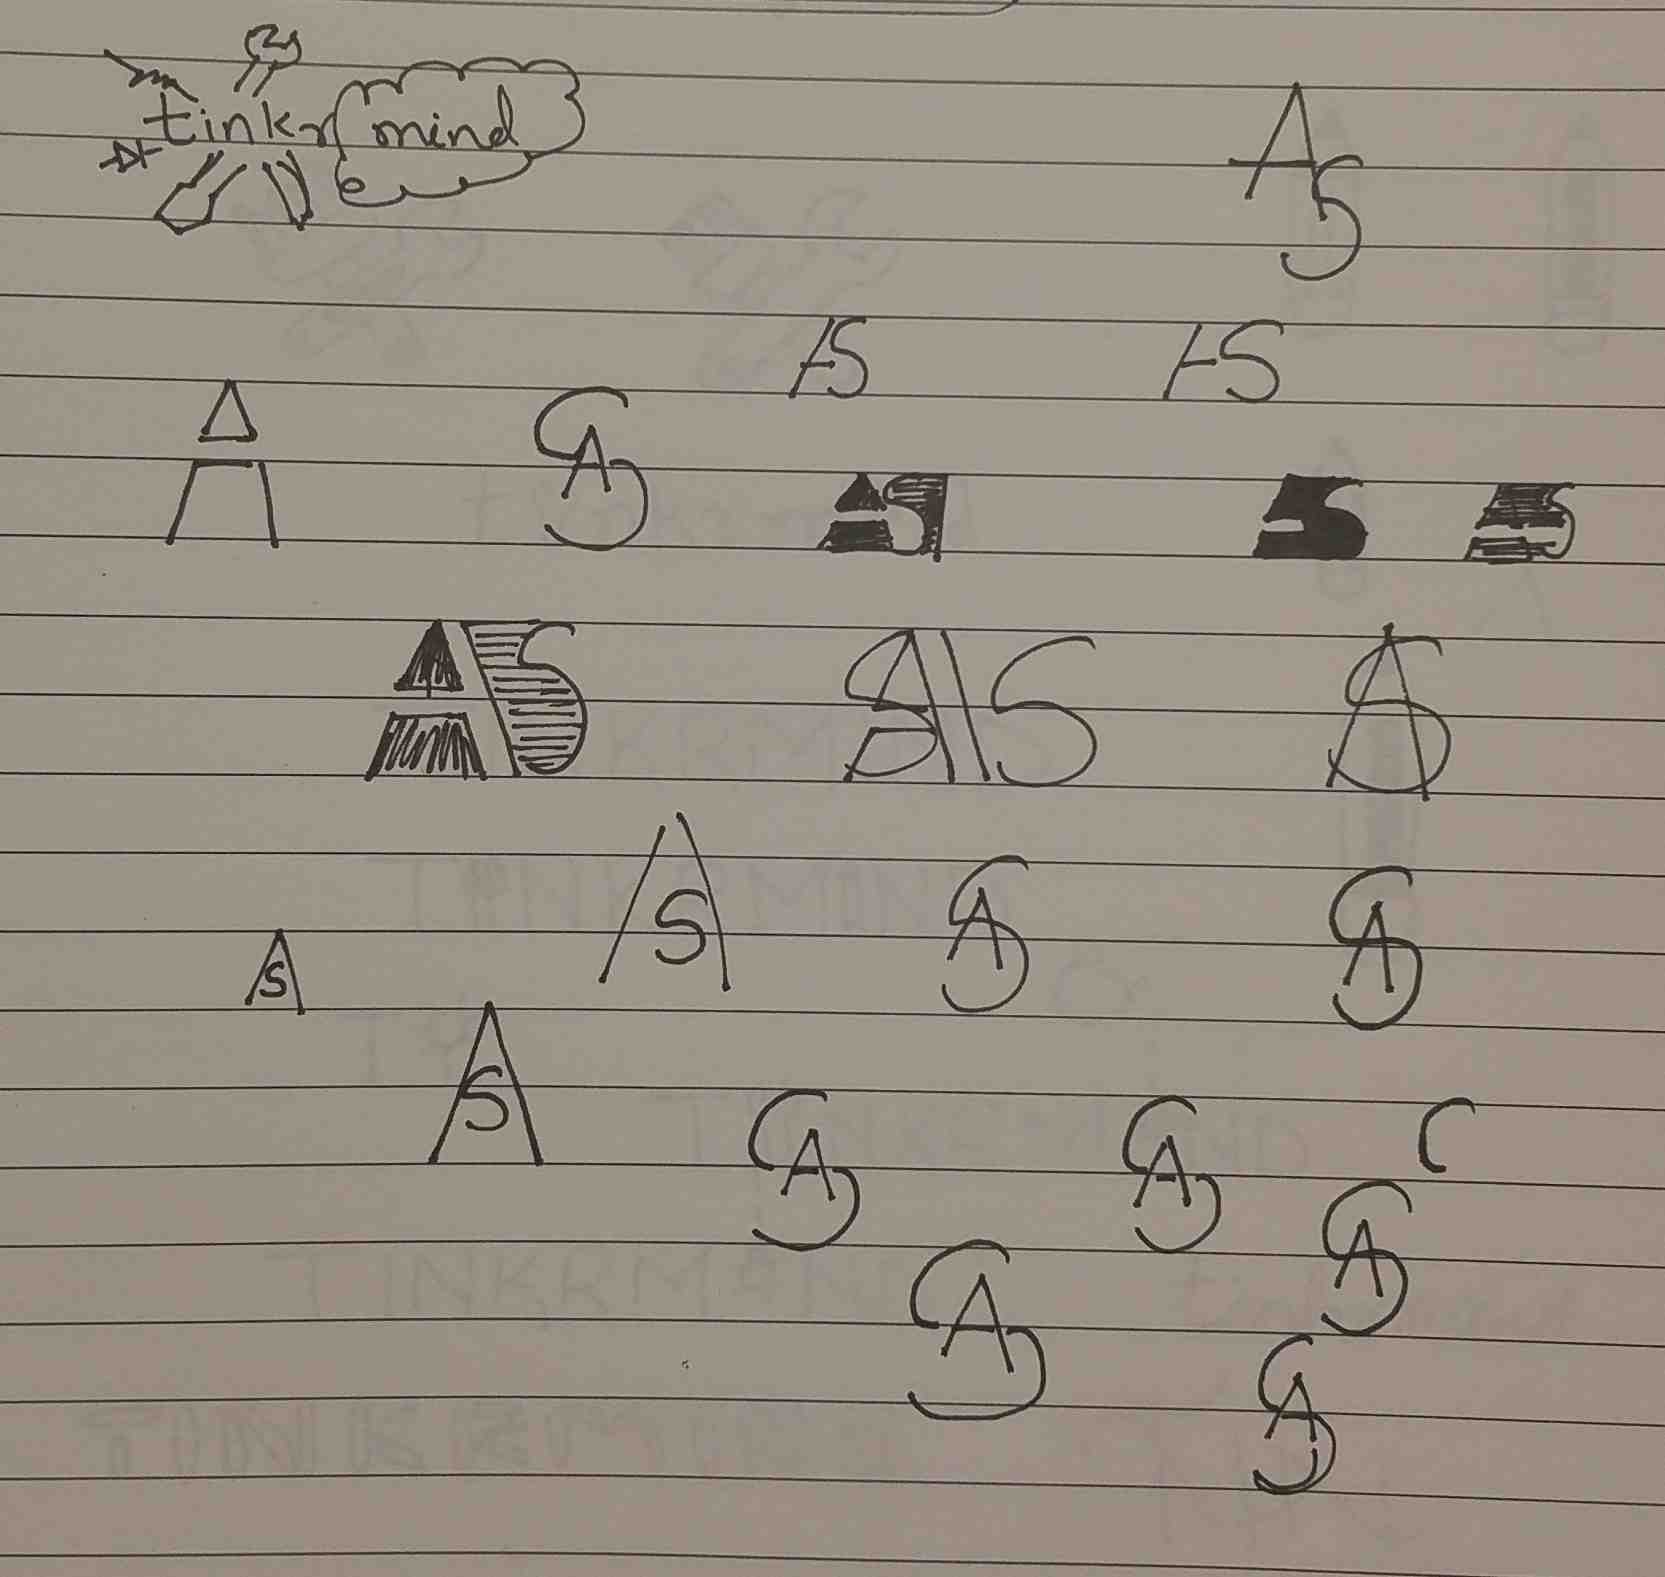 tinkr mind
AS
AS AS
A SA
AS AS AS
AS SA S AS
AS SA SA
AS
AS
SA SA
SA
SA
SA